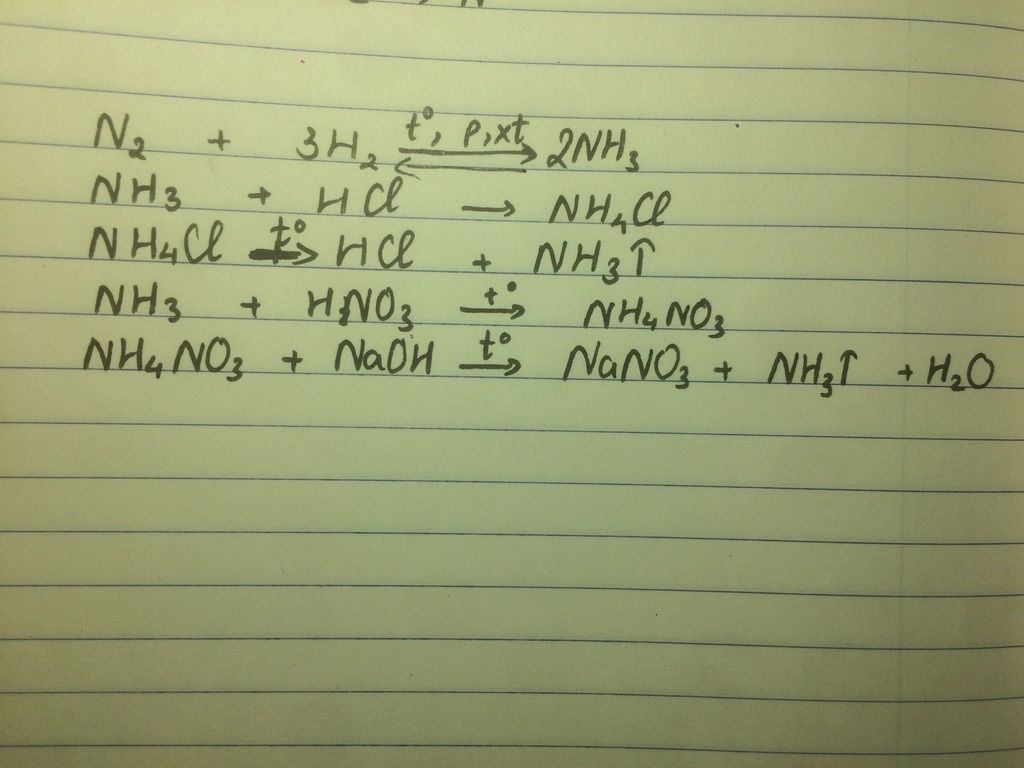 N₂ + 3H₂ ⇌ t°, p,xt 2NH₃
NH₃ + HCl → NH₄Cl
NH₄Cl t°→ HCl + NH₃↑
NH₃ + HNO₃ t°→ NH₄NO₃
NH₄NO₃ + NaOH t°→ NaNO₃ + NH₃↑ + H₂O